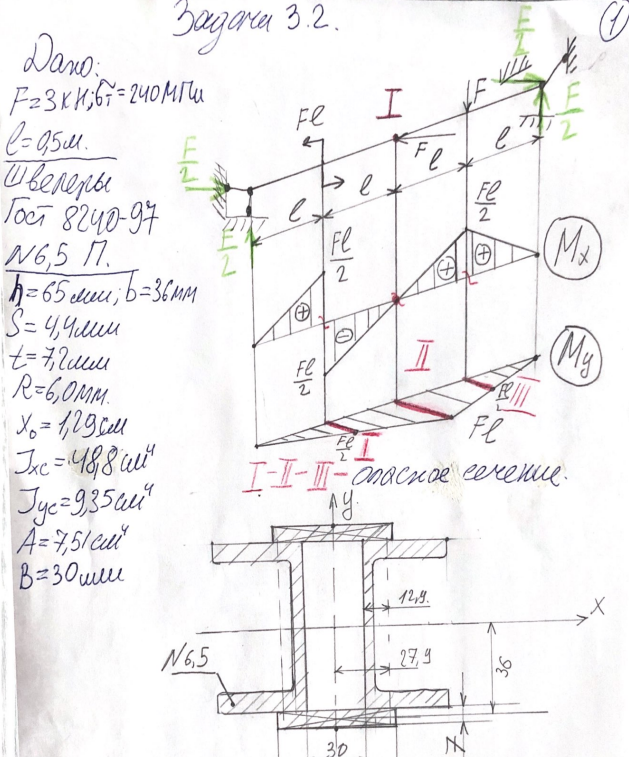 Задача 3.2.
1
Дано:
F=3кН; бт=240МПа
l=0,5м.
Швеллеры
Гост 8240-97
N6,5 П.
h=65мм; b=36мм
S=4,4мм
t=7,2мм
R=6,0мм.
x₀=1,29см
Jxc=48,8см⁴
Jyc=9,35см⁴
A=7,51см⁴
B=30мм
F/2
F/2
F/2
F/2
F
Fl
I
Fl
l
l
l
l
Fl/2
Fl/2
Fl/2
+
−
+
+
Mx
II
My
Fl/2
I
Fl
Fl/2
III
I-II-III-опасное сечение.
y
x
12,9
27,9
36
N6,5
30
7